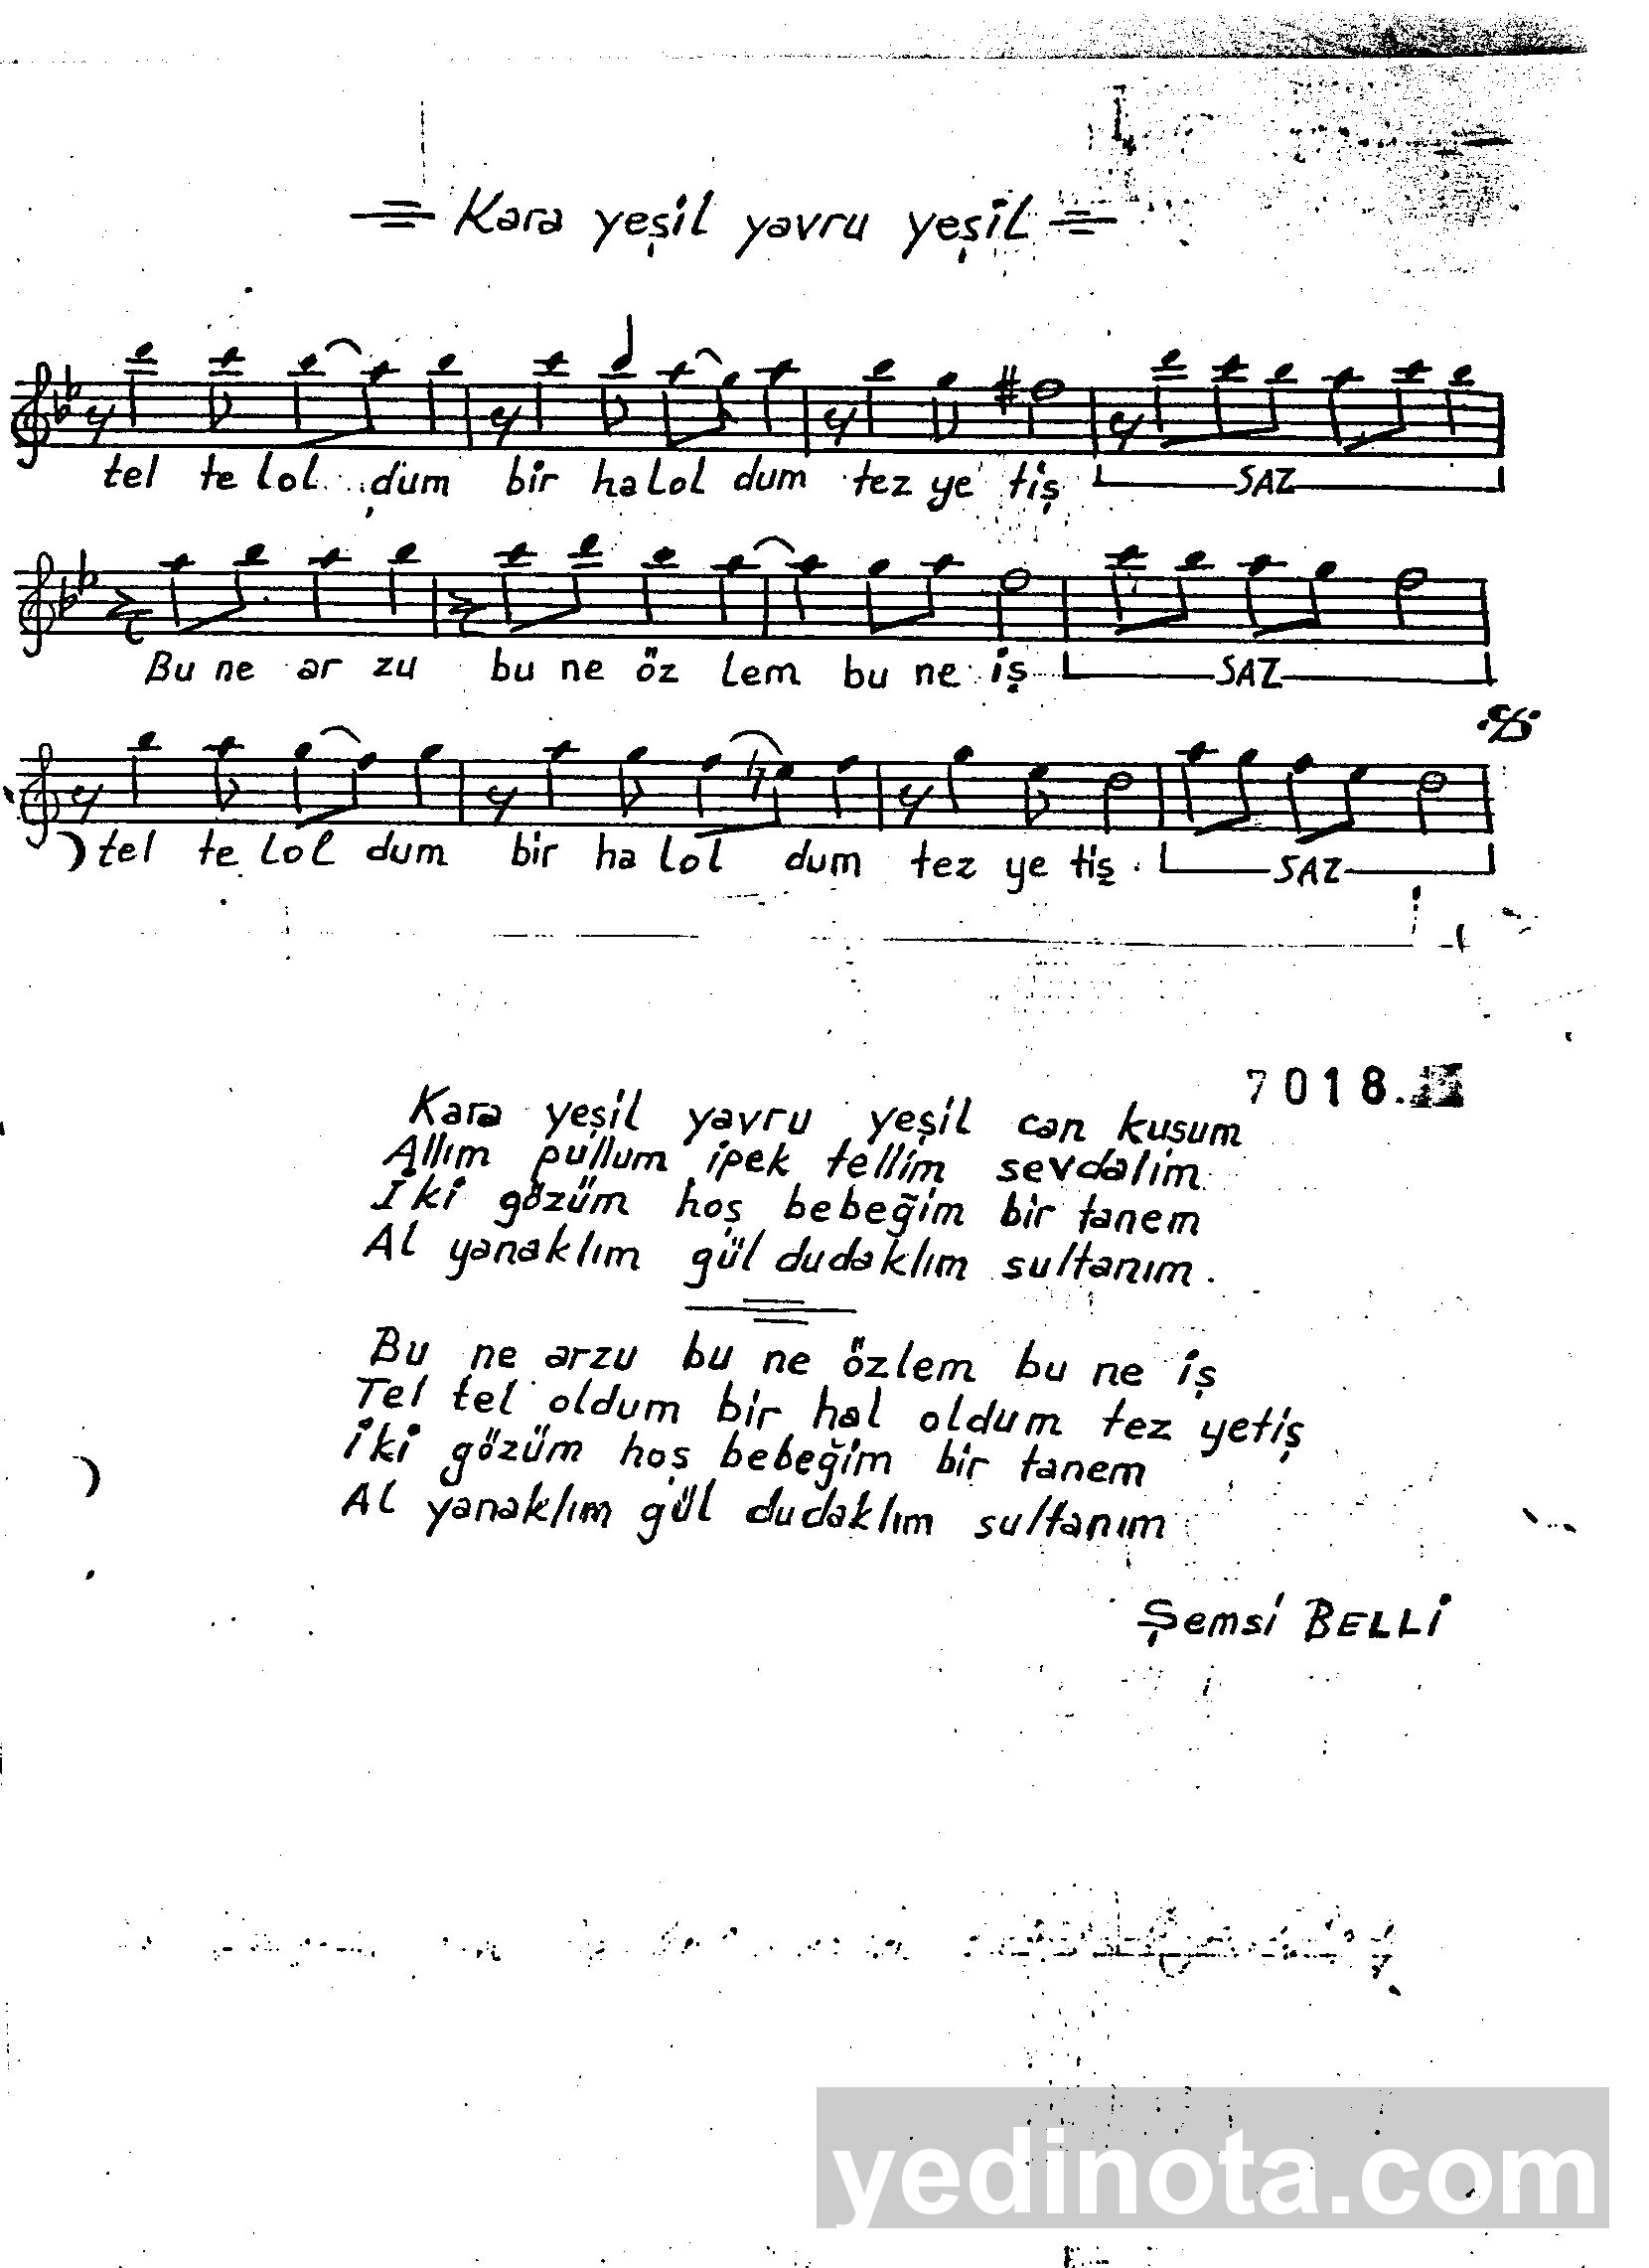 Kara yeşil yavru yeşil
tel te lol dum bir ha lol dum tez ye tiş SAZ
Bu ne ar zu bu ne öz lem bu ne iş SAZ
tel te lol dum bir ha lol dum tez ye tiş SAZ
7018.
Kara yeşil yavru yeşil can kuşum
Allım pullum ipek tellim sevdalim
İki gözüm hoş bebeğim bir tanem
Al yanaklım gül dudaklım sultanım.
Bu ne arzu bu ne özlem bu ne iş
Tel tel oldum bir hal oldum tez yetiş
iki gözüm hoş bebeğim bir tanem
Al yanaklım gül dudaklım sultanım
Şemsi BELLİ
yedinota.com